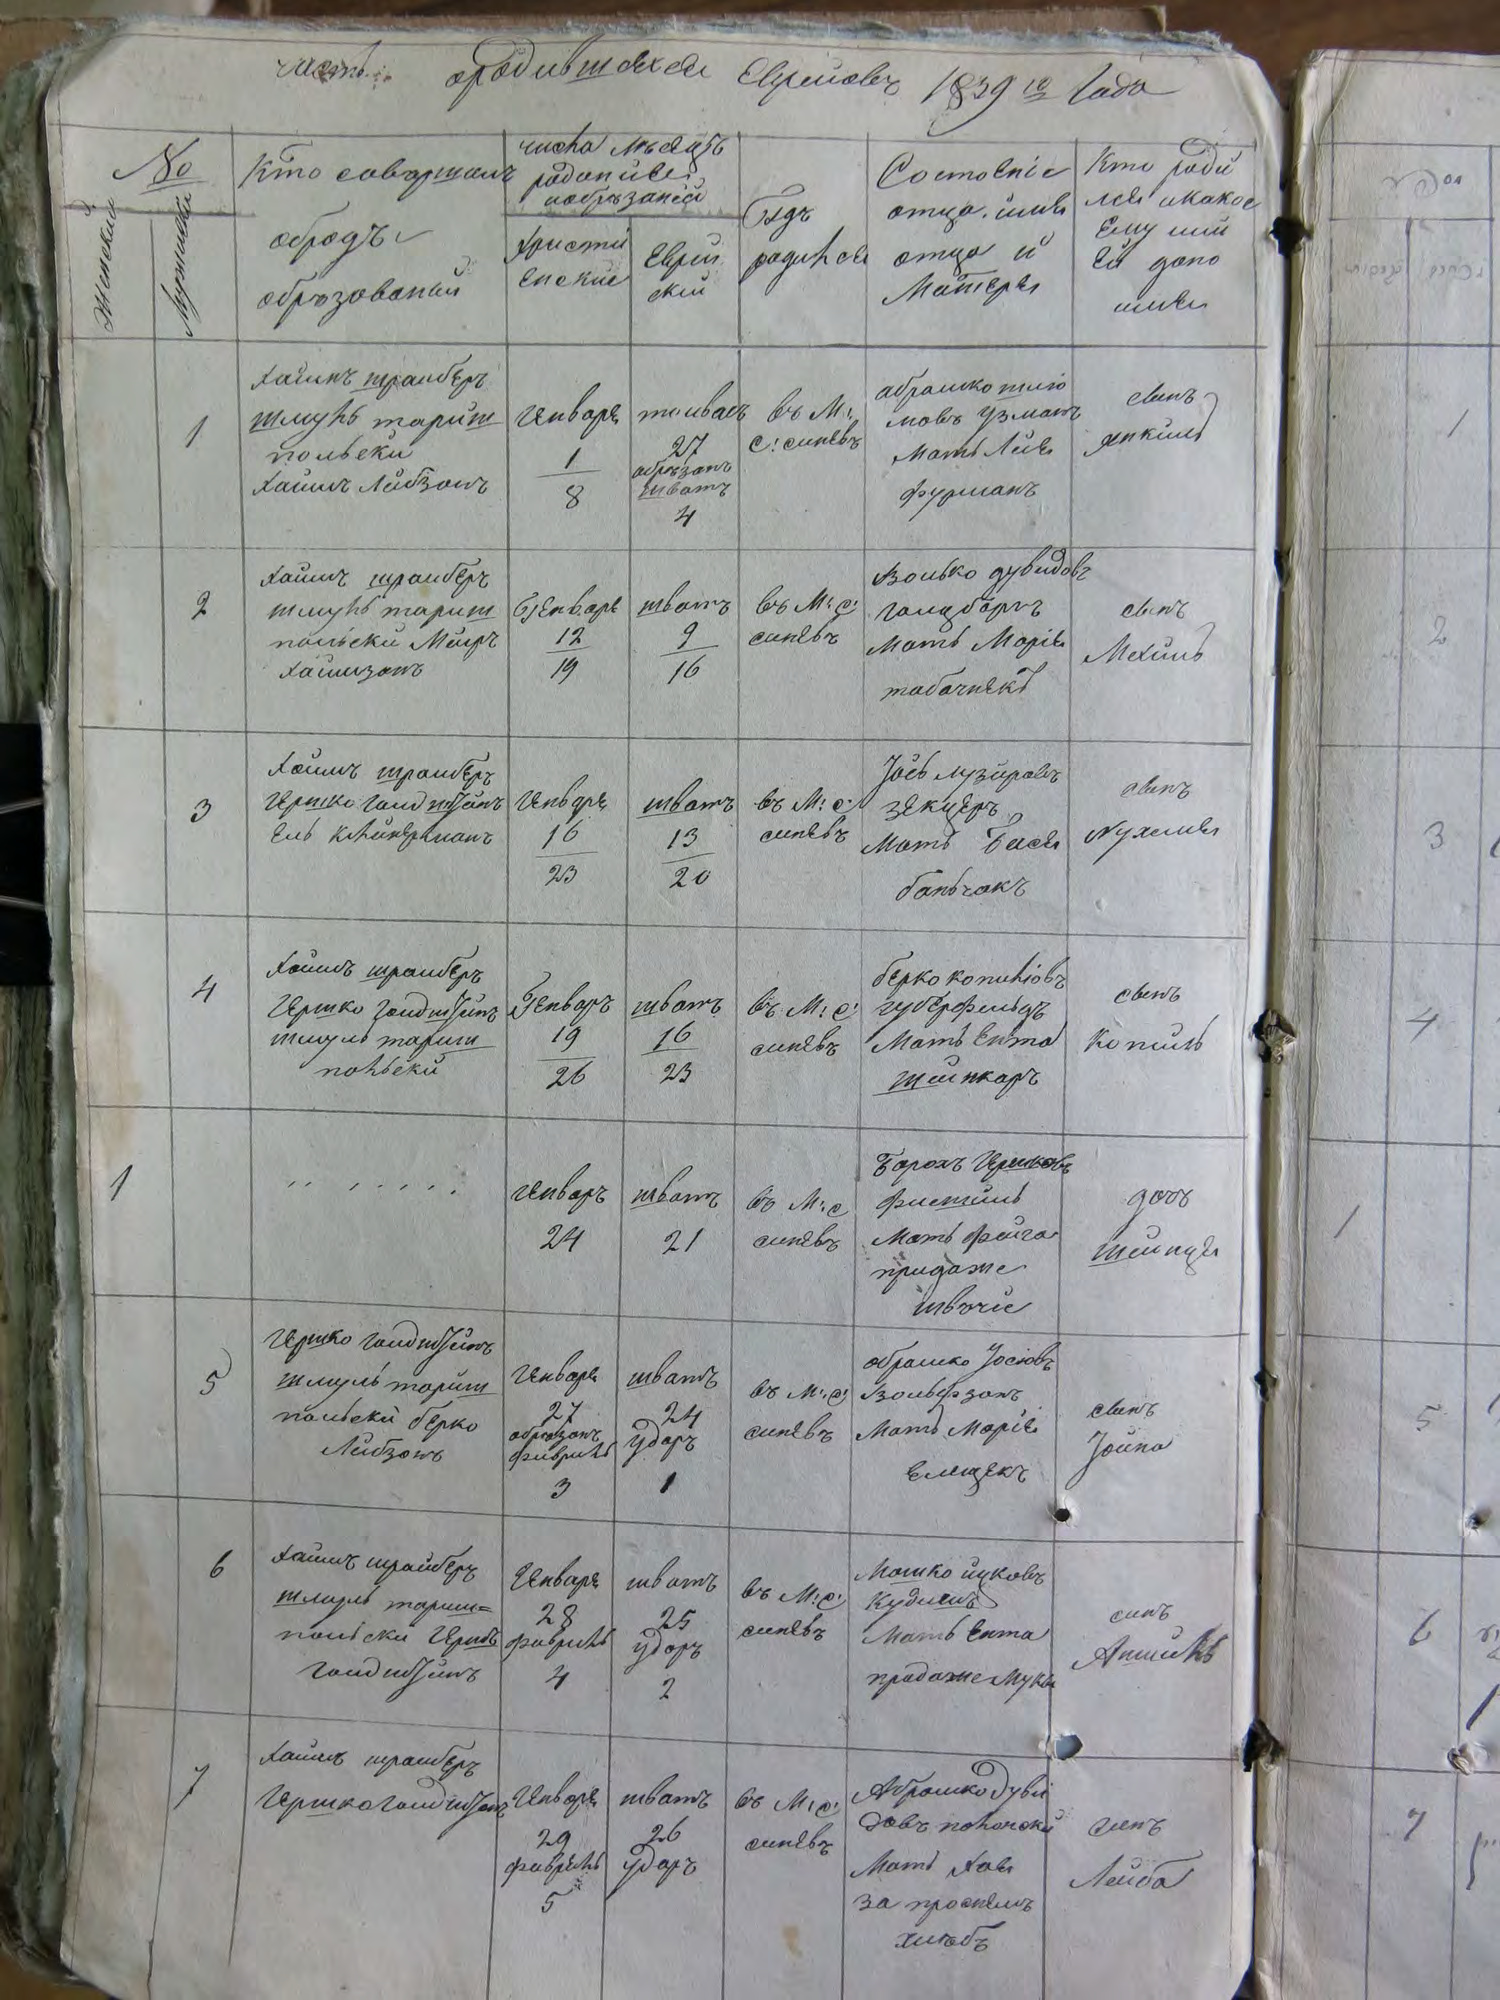 часть ородившяхся Евреиовъ 1839 го Года
No
Женский
Мужеский
Кто совѣршалъ
обродъ
обрѣзованія
числа мѣсяцъ
родонія
иобрѣзаній
Христи
енские
Еврей
ский
Гдѣ
родился
Состояніе
отца, имя
отца и
Матеря
Кто роди
лся икакое
Ему ими
Ей дано
имя
1
Хаимъ шрамберъ
шмуль тариш
польски
Хаимъ Лейбзонъ
Генваря
1
8
27
обрѣзанъ
шватъ
4
въ М:
с: синявъ
абрашко
мовъ узманъ
Мать Лея
фурманъ
сынъ
янкиль
2
Хаимъ шрамберъ
шмуль тариш
польски Меиръ
Хаимзонъ
Генваря
12
19
шватъ
9
16
въ М: с:
синявъ
волько дувидовъ
голцборгъ
Мать Марія
табачнякъ
сынъ
Мехиль
3
Хаимъ шрамберъ
Гершко голдштейнъ
Ель клейнерманъ
Генваря
16
23
шватъ
13
20
въ М: с:
синявъ
Іось лузировъ
зекцеръ
Мать Бася
баньчакъ
сынъ
Нухемя
4
Хаимъ шрамберъ
Гершко голдштейнъ
шмуль тариш
польски
Генваръ
19
26
шватъ
16
23
въ М: с:
синявъ
берко копиліовъ
губерфельдъ
Мать Ента
шинкаръ
сынъ
Копиль
1
Генваръ
24
шватъ
21
въ М: с
синявъ
Борохъ Гершковъ
фиштиль
Мать фейга
придаже
швечи
дочъ
шейнця
5
Гершко голдштейнъ
шмуль тариш
польски берко
Лейбзонъ
Генваря
27
обрезанъ
февриль
3
шватъ
24
удоръ
1
въ М: с:
синявъ
обрашко Іосіовъ
вольфзонъ
Мать Марія
Елецекъ
сынъ
Іойна
6
Хаимъ шрайберъ
шмуль тариш=
польски Гершъ
голдштейнъ
Генваря
28
февриль
4
шватъ
25
удоръ
2
въ М: с:
синявъ
Мошко ицковъ
Кудишъ
Мать Ента
продаже Муки
синъ
Аншиль
7
Хаимъ шрамберъ
Гершко голдштейнъ
Генваря
29
февриль
5
шватъ
26
удоръ
въ М: с:
синявъ
Аброшко Дуви
довъ полонски
Мать Хая
за просиемъ
хлѣбъ
синъ
Лейба
1
2
3
4
1
5
6
7